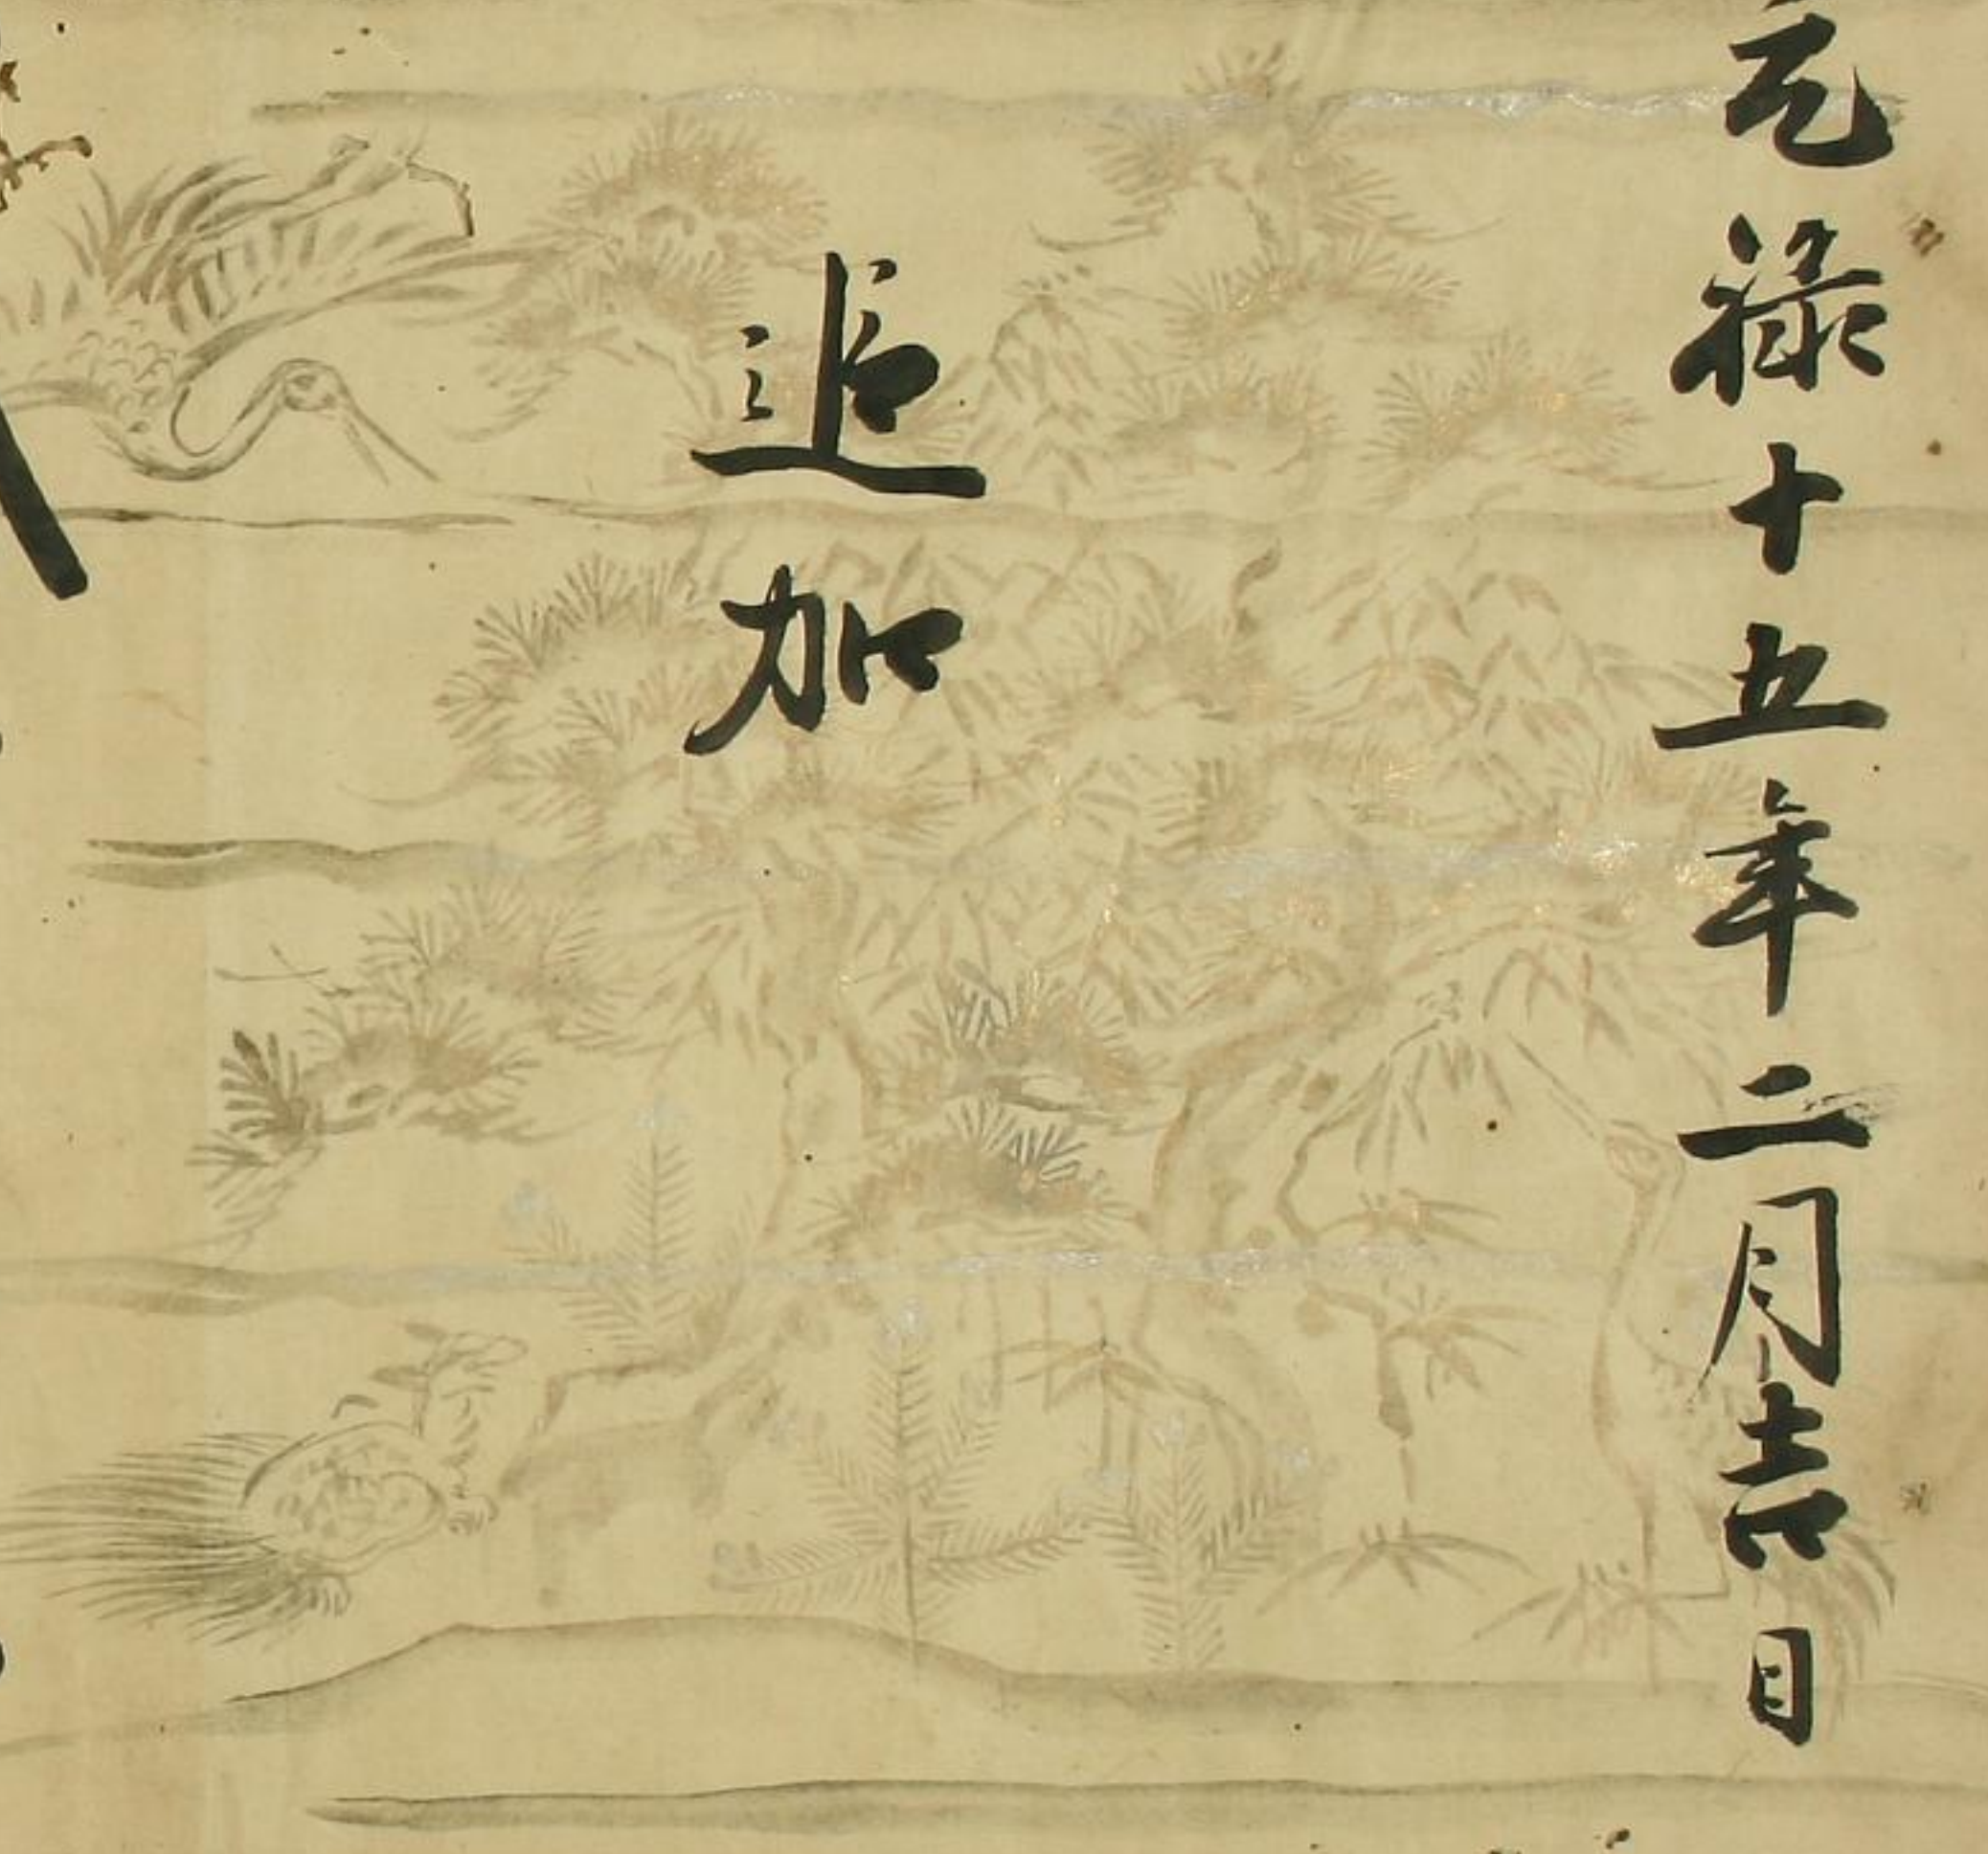 元禄十五年二月吉日
追加